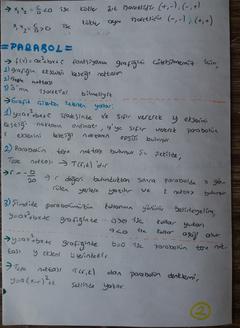 x₁.x₂ = c/a < 0 ise kökler zıt işaretlidir (+,-), (-,+)
x₁.x₂ = c/a > 0 ise kökler aynı işaretlidir (-,-), (+,+)
=PARABOL=
→ f(x)=ax²+bx+c fonksiyonun grafiğini için,
1) Grafiğin eksenleri kestiği noktalar
2) Tepe noktası
3) a'nın işaretini bilmeliyiz
→ Grafik çizilirken
1) y=ax²+bx+c x yerine sıfır vererek y eksenini
kestiği noktanın ordinatı, y'ye sıfır vererek parabolün
x eksenini kestiği noktanın apsisi bulunur
2) Parabolün tepe noktası bulunur. Şu şekilde,
Tepe noktası → T(r,k) dır
→ r = -b/2a → r değeri bulunduktan sonra parabolde x
yerlere yazılır ve k noktası bulunur
3) Şimdide parabolümüzün kollarının yönünü belirleyelim,
y=ax²+bx+c grafiğinde a>0 ise kollar yukarı
a<0 ise kollar aşağı olur
→ y=ax²+bx+c grafiğinde b=0 ise parabolün tepe nok-
tası y ekseni üzerindedir
→ Tepe noktası T(r,k) olan parabolün denklemi,
y=a(x-r)²+k şeklinde yazılır
2